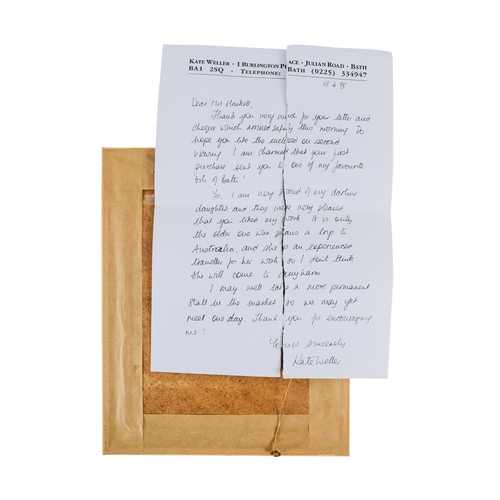 KATE WELLER · 1 BURLINGTON PLACE · JULIAN ROAD · BATH
BA1 2SQ · TELEPHONE: BATH (0225) 334947
Dear Mr Haskell,
Thank you very much for your letter and
cheque which arrived safely this morning. I do
hope you like the enclosed on second
viewing. I am charmed that your first
purchase sent you to one of my favourite
bits of bath!
Yes, I am very proud of my darling
daughters and they were very pleased
that you liked my work. It is only
the older one who plans a trip to
Australia, and she is an experienced
traveller for her work so I don't think
she will come to any harm.
I may well take a more permanent
stall in the market so we may yet
meet one day. Thank you for encouraging
me!
Yours sincerely
Kate Weller.